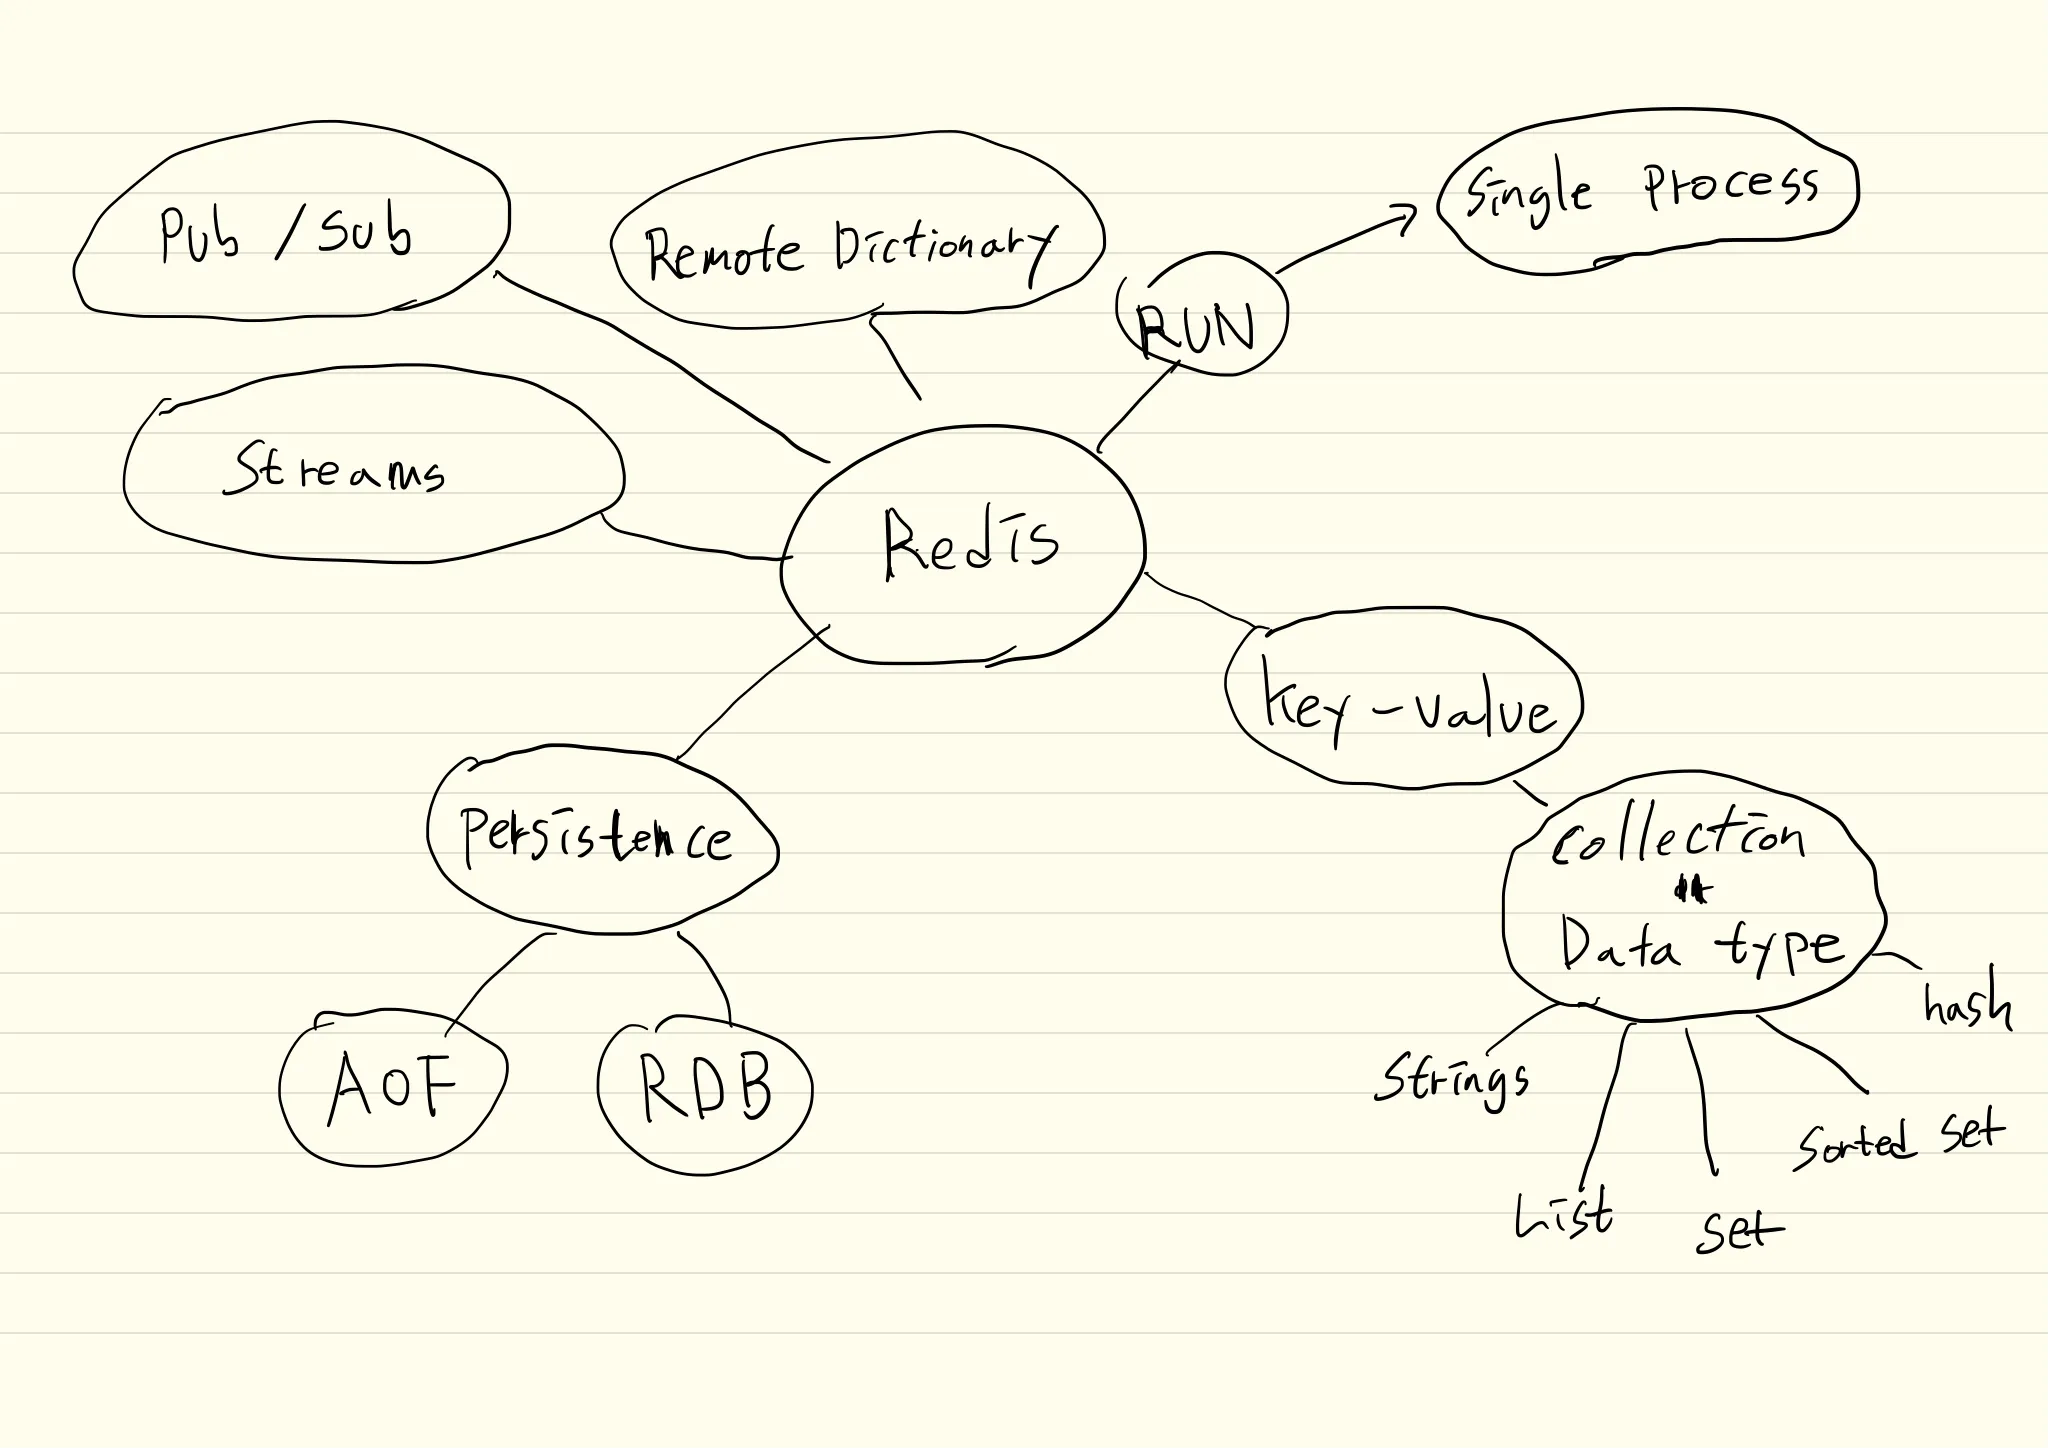 Pub / Sub
Remote Dictionary
RUN
Single Process
Streams
Redis
key-value
Persistence
collection
Data type
AOF
RDB
Strings
List
set
Sorted set
hash